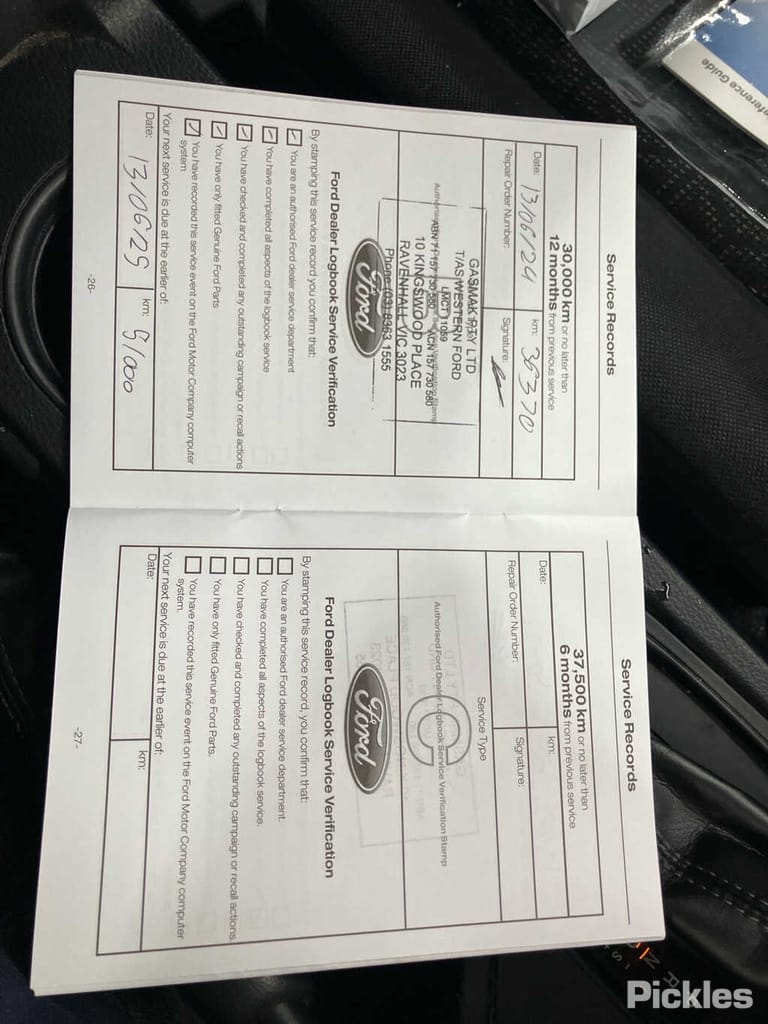 Service Records
30,000 km or no later than
12 months from previous service
Date: 13/06/24 km: 36370
Repair Order Number: Signature:
GASMAK PTY LTD
T/AS WESTERN FORD
LMCT 11059
ABN 71 157 730 580 ACN 157 730 580
10 KINGSWOOD PLACE
RAVENHALL VIC 3023
Phone: (03) 8363 1555
Ford
Ford Dealer Logbook Service Verification
By stamping this service record you confirm that:
You are an authorised Ford dealer service department
You have completed all aspects of the logbook service
You have checked and completed any outstanding campaign or recall actions
You have only fitted Genuine Ford Parts
You have recorded this service event on the Ford Motor Company computer
system
Your next service is due at the earlier of:
Date: 13/06/25 km: 51000
-26-
Service Records
37,500 km or no later than
6 months from previous service
Date: km:
Repair Order Number: Signature:
Service Type
C
Authorised Ford Dealer Logbook Service Verification Stamp
Ford
Ford Dealer Logbook Service Verification
By stamping this service record, you confirm that:
You are an authorised Ford dealer service department.
You have completed all aspects of the logbook service.
You have checked and completed any outstanding campaign or recall actions.
You have only fitted Genuine Ford Parts.
You have recorded this service event on the Ford Motor Company computer
system.
Your next service is due at the earlier of:
Date: km:
-27-
eference Guide
R
N
Pickles